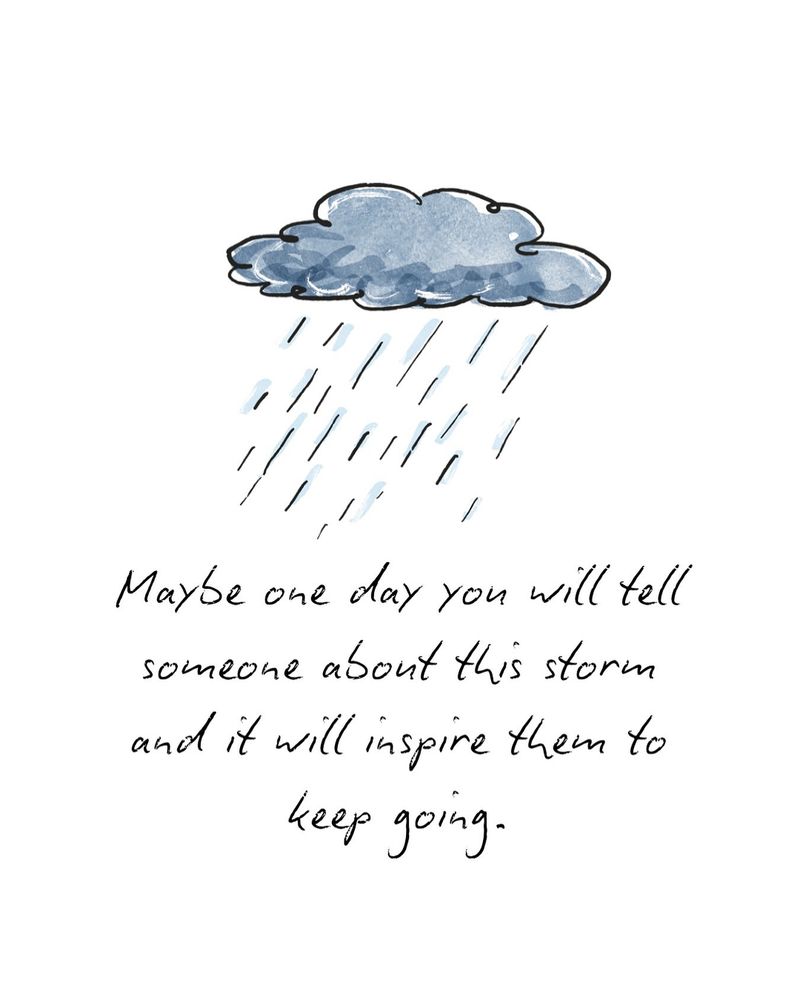 Maybe one day you will tell
someone about this storm
and it will inspire them to
keep going.